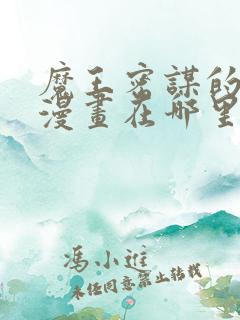 魔王密謀的
漫畫在哪里
馮小進
未任同意禁止轉載